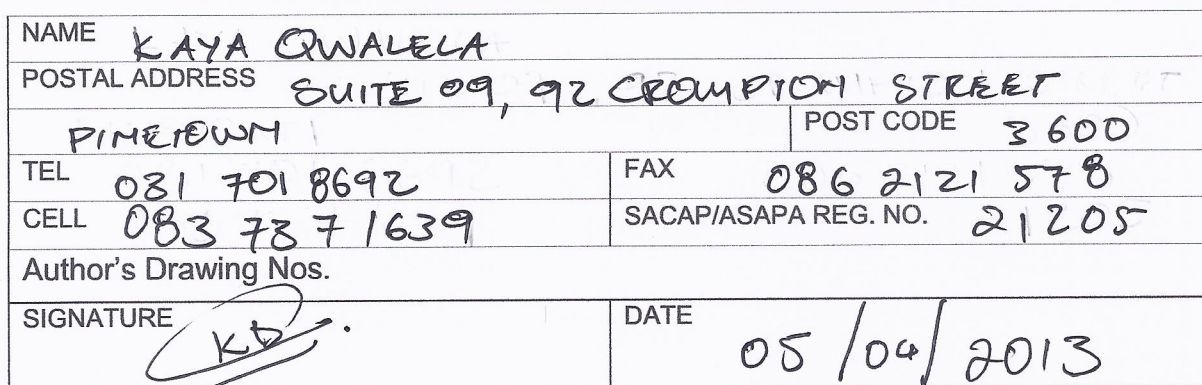 NAME KAYA QWALELA
POSTAL ADDRESS SUITE 09, 92 CROMPTON STREET
PINETOWN POST CODE 3600
TEL 031 701 8692 FAX 086 2121 578
CELL 083 737 1639 SACAP/ASAPA REG. NO. 21205
Author's Drawing Nos.
SIGNATURE DATE 05/04/2013